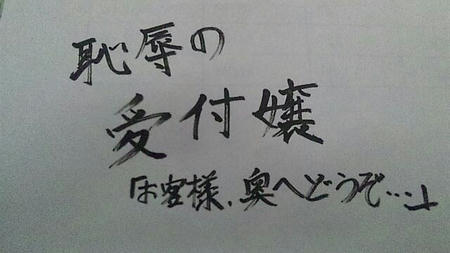 恥辱の
受付嬢
「お客様、奥へどうぞ…」